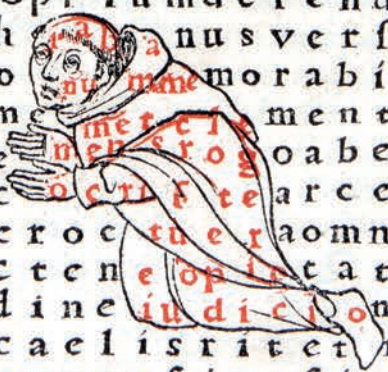 r a b a n u s v e r ſ
o n u m m e m o r a b i
n e m e t c l e m e n t
m e n s r o g o a b e
o c r i ſ t e a r c o
c r o c t u e r a o m n
c t e n e o p i e t a t
d i n e i u d i c i o n
c a e l i s r i t e t